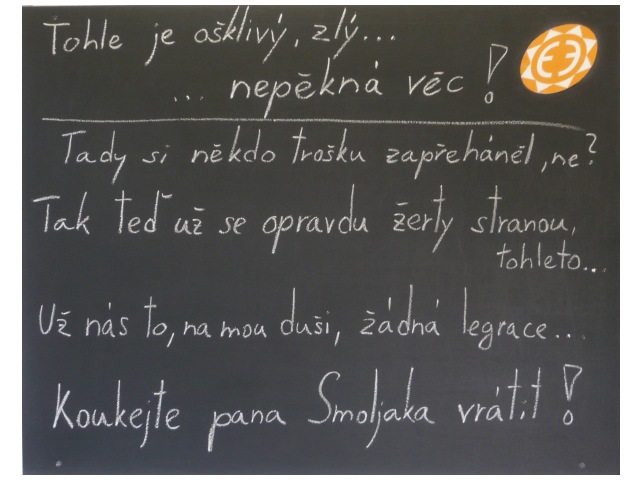 Tohle je ošklivý, zlý...
... nepěkná věc!
Tady si někdo trošku zapřeháněl, ne?
Tak teď už se opravdu žerty stranou,
tohleto...
Už nás to, na mou duši, žádná legrace...
Koukejte pana Smoljaka vrátit!